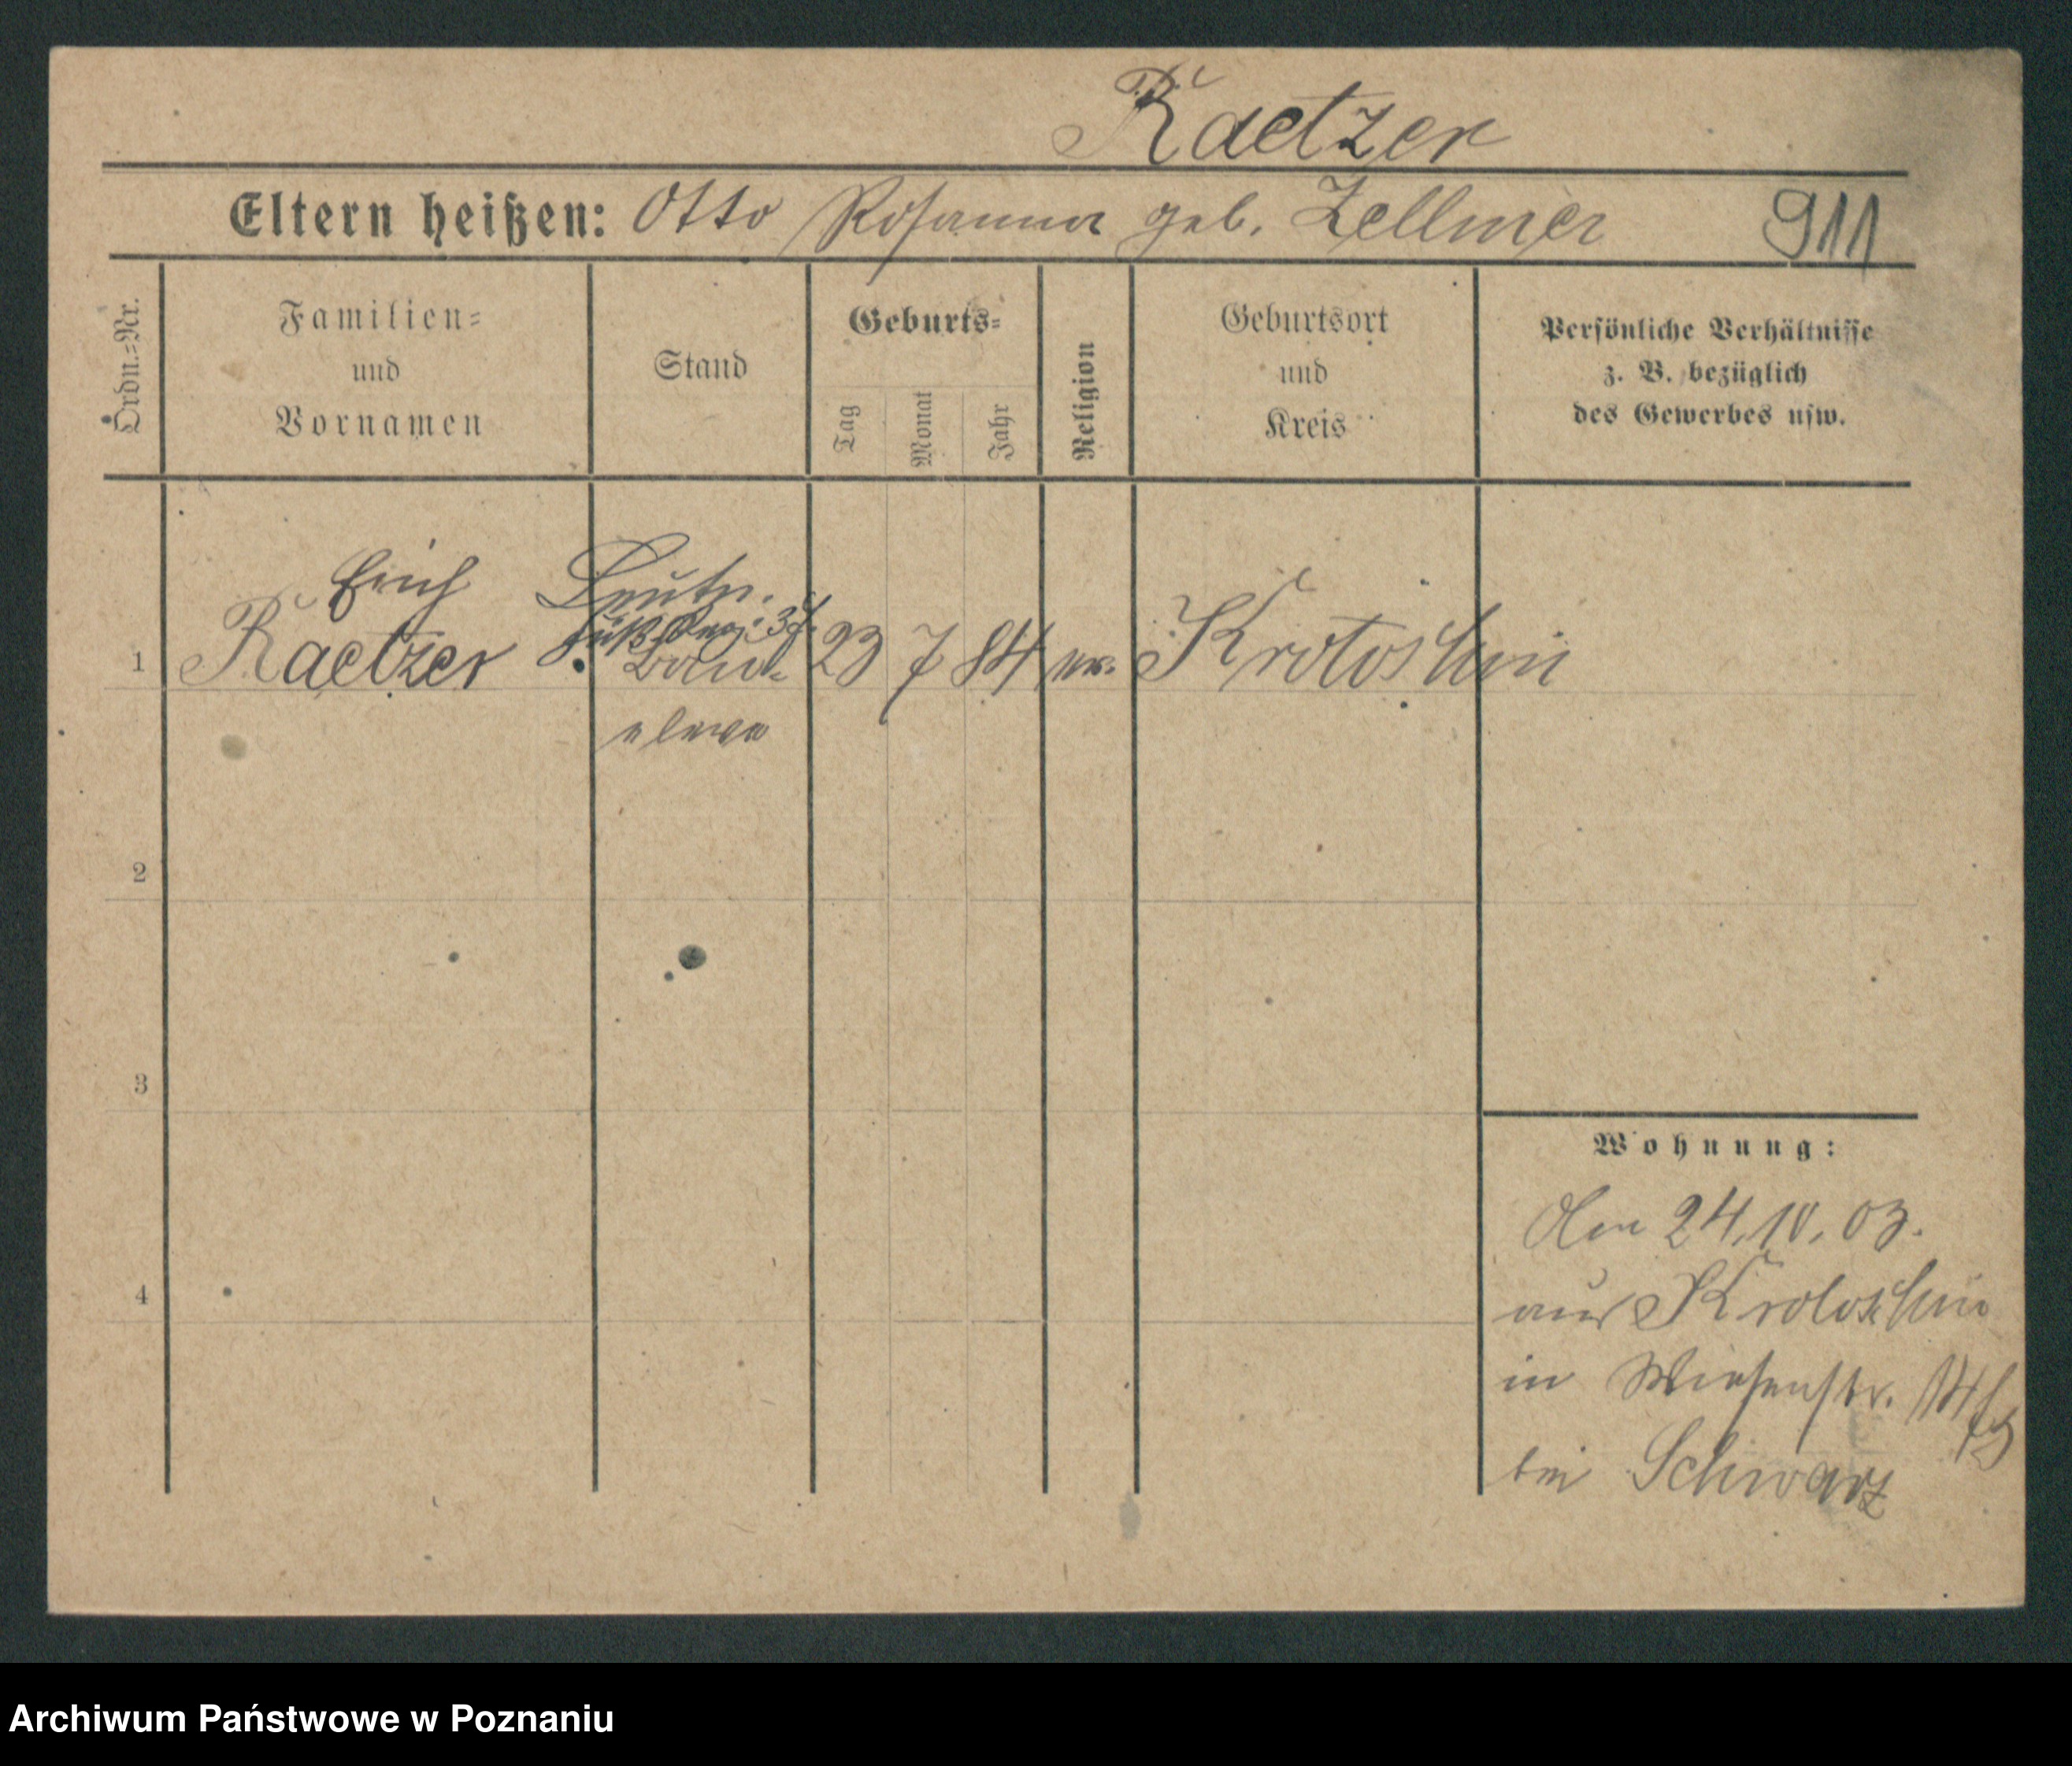 Raetzer
Eltern heißen: Otto Rosanna geb. Zellmer 911
Ordn.=Nr.
Familien=
und
Vornamen
Stand
Geburts=
Tag
Monat
Jahr
Religion
Geburtsort
und
Kreis
Persönliche Verhältnisse
z. B. bezüglich
des Gewerbes usw.
Erich Leutn.
1 Raetzer Bau= 23 7 84 ev. Krotoschin
eleve
2
3
4
Wohnung:
Am 24.10.03.
aus Krotoschin
in Wiesenstr. 14
bei Schwarz
Archiwum Państwowe w Poznaniu